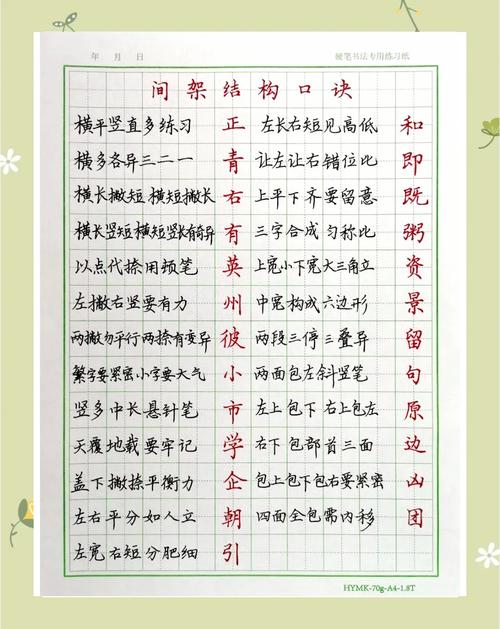 年 月 日
硬笔书法专用练习纸
间架结构口诀
横平竖直多练习 正 左长右短见高低 和
横多各异三二一 青 让左让右错位比 即
横长撇短 横短撇长 右 上平下齐要留意 既
横长竖短 横短竖长有奇异 有 三字合成匀称比 粥
以点代捺用顿笔 英 上宽小下宽大三角立 资
左撇右竖要有力 州 中宽构成六边形 景
两撇勿平行两捺有变异 彼 两段三停三叠异 留
繁字要紧密小字要大气 小 两面包左斜竖笔 句
竖多中长悬针笔 市 左上包下 右上包左 原
天覆地载要牢记 学 右下包部首三面 边
盖下撇捺平衡力 企 包上包下包右要紧密 凶
左右平分如人立 朝 四面全包需内移 团
左宽右短分肥细 引
HYMK-70g-A4-1.8T